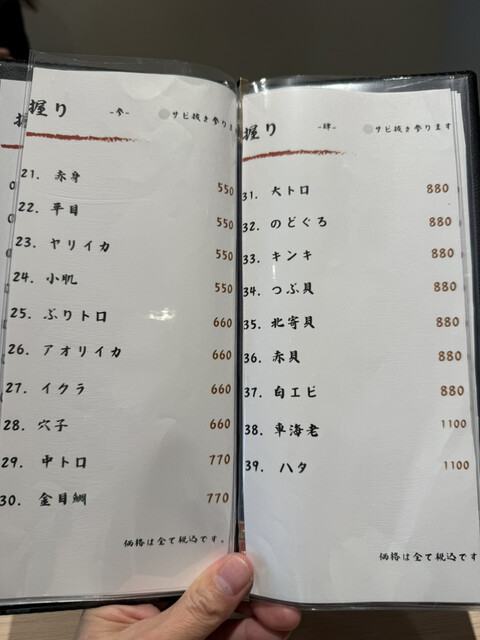 握り -参- サビ抜き参ります
21. 赤身 550
22. 平目 550
23. ヤリイカ 550
24. 小肌 550
25. ぶりトロ 660
26. アオリイカ 660
27. イクラ 660
28. 穴子 660
29. 中トロ 770
30. 金目鯛 770
価格は全て税込です。
握り -肆- サビ抜き参ります
31. 大トロ 880
32. のどぐろ 880
33. キンキ 880
34. つぶ貝 880
35. 北寄貝 880
36. 赤貝 880
37. 白エビ 880
38. 車海老 1100
39. ハタ 1100
価格は全て税込です